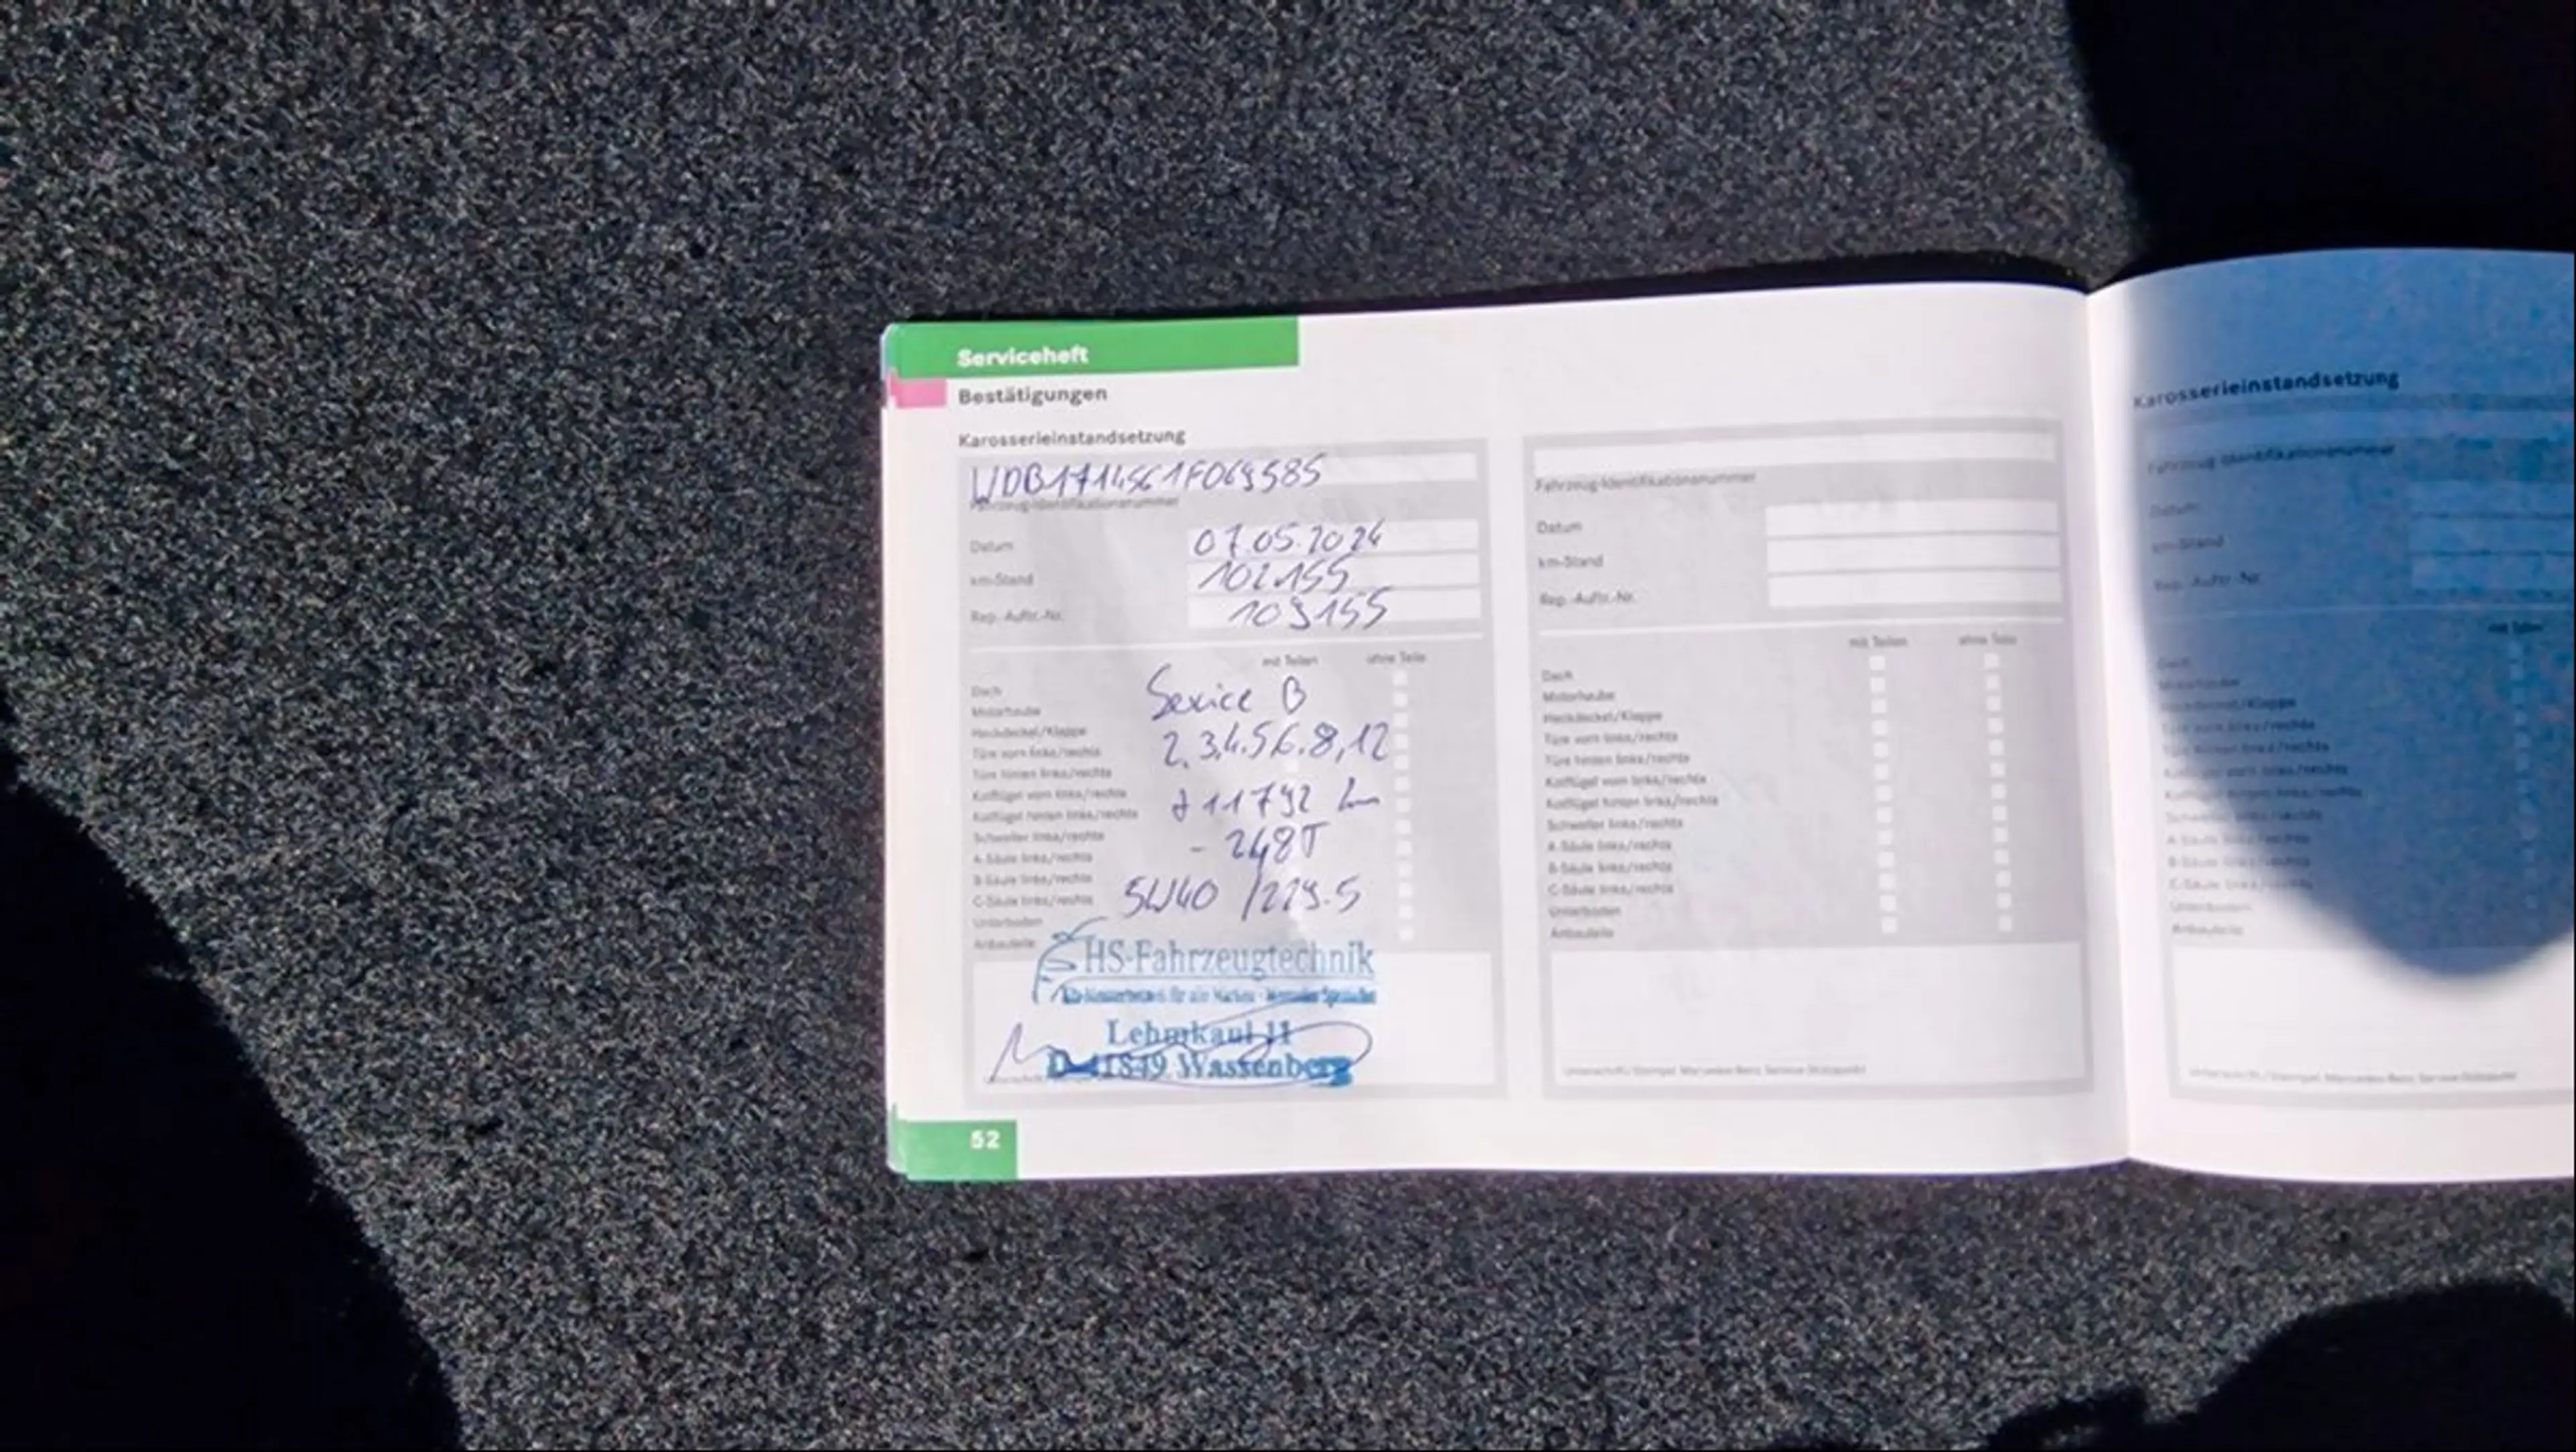 Serviceheft
Bestätigungen
Karosserieinstandsetzung
WDB1714561F069585
Fahrzeug-Identifikationsnummer
Datum 07.05.2024
km-Stand 102155
Rep.-Auftr.-Nr. 109155
mit Teilen ohne Teile
Service B
2,3,4.5,6.8,12
11792 km
- 248T
5W40 /229.5
Dach
Motorhaube
Heckdeckel/Klappe
Türe vorn links/rechts
Türe hinten links/rechts
Kotflügel vorn links/rechts
Kotflügel hinten links/rechts
Schweller links/rechts
A-Säule links/rechts
B-Säule links/rechts
C-Säule links/rechts
Unterboden
Anbauteile
HS-Fahrzeugtechnik
für alle Marken
Lehmkaul 11
D-41849 Wassenberg
52
Fahrzeug-Identifikationsnummer
Datum
km-Stand
Rep.-Auftr.-Nr.
mit Teilen ohne Teile
Dach
Motorhaube
Heckdeckel/Klappe
Türe vorn links/rechts
Türe hinten links/rechts
Kotflügel vorn links/rechts
Kotflügel hinten links/rechts
Schweller links/rechts
A-Säule links/rechts
B-Säule links/rechts
C-Säule links/rechts
Unterboden
Anbauteile
Unterschrift/Stempel Mercedes-Benz Service-Stützpunkt
Karosserieinstandsetzung
Fahrzeug-Identifikationsnummer
Datum
km-Stand
Rep.-Auftr.-Nr.
mit Teilen
Dach
Motorhaube
Heckdeckel/Klappe
Türe vorn links/rechts
Türe hinten links/rechts
Kotflügel vorn links/rechts
Kotflügel hinten links/rechts
Schweller links/rechts
A-Säule links/rechts
B-Säule links/rechts
C-Säule links/rechts
Unterboden
Anbauteile
Unterschrift/Stempel Mercedes-Benz Service-Stützpunkt